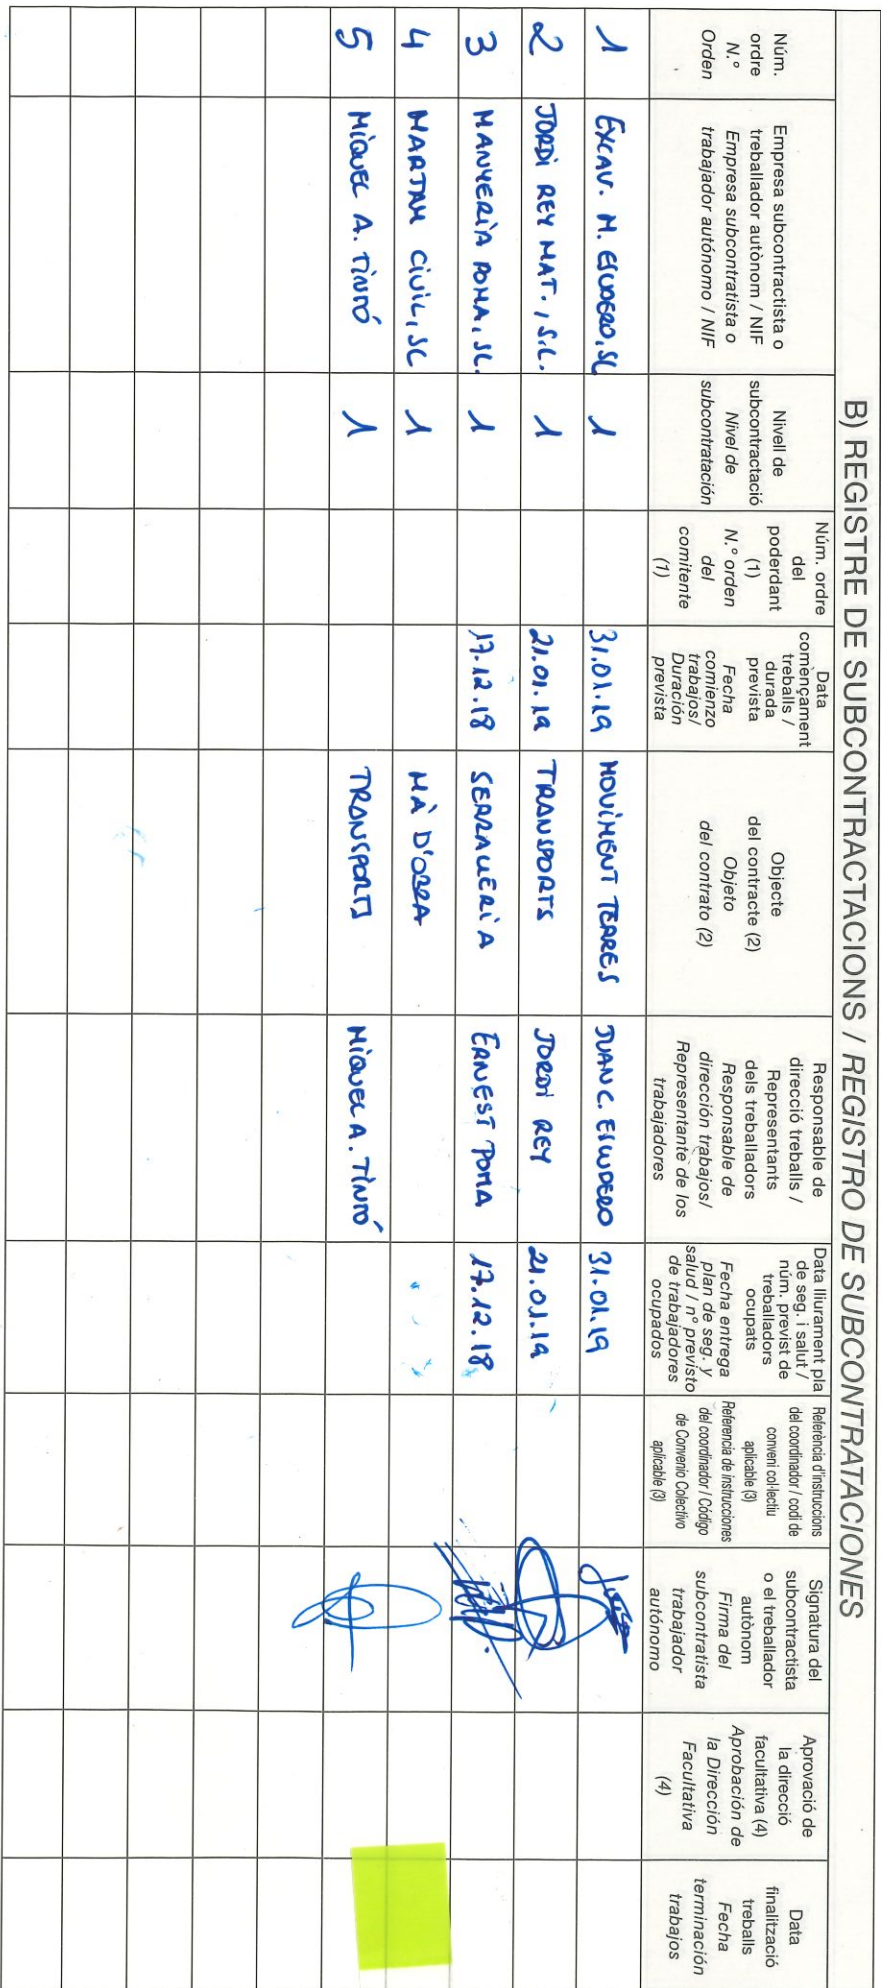 B) REGISTRE DE SUBCONTRACTACIONS / REGISTRO DE SUBCONTRATACIONES
Núm.
ordre
N.º
Orden
Empresa subcontractista o
treballador autònom / NIF
Empresa subcontratista o
trabajador autónomo / NIF
Nivell de
subcontractació
Nivel de
subcontratación
Núm. ordre
del
poderdant
(1)
N.º orden
del
comitente
(1)
Data
començament
treballs /
durada
prevista
Fecha
comienzo
trabajos/
Duración
prevista
Objecte
del contracte (2)
Objeto
del contrato (2)
Responsable de
direcció treballs /
Representants
dels treballadors
Responsable de
dirección trabajos/
Representante de los
trabajadores
Data lliurament pla
de seg. i salut /
núm. previst de
treballadors
ocupats
Fecha entrega
plan de seg. y
salud / nº previsto
de trabajadores
ocupados
Referència d'instruccions
del coordinador / codi de
conveni col·lectiu
aplicable (3)
Referencia de instrucciones
del coordinador / Código
de Convenio Colectivo
aplicable (3)
Signatura del
subcontractista
o el treballador
autònom
Firma del
subcontratista
trabajador
autónomo
Aprovació de
la direcció
facultativa (4)
Aprobación de
la Dirección
Facultativa
(4)
Data
finalització
treballs
Fecha
terminación
trabajos
1 EXCAV. M. ESCUDERO, SL 1 31.01.19 MOVIMENT TERRES JUAN C. ESCUDERO 31.01.19
2 JORDI REY MAT., S.L. 1 21.01.19 TRANSPORTS JORDI REY 21.01.19
3 MANYERIA POMA, SL. 1 17.12.18 SERRALLERIA ERNEST POMA 17.12.18
4 MARTAM CIVIL, SC 1 MÀ D'OBRA
5 MIQUEL A. TINTÓ 1 TRANSPORTS MIQUEL A. TINTÓ